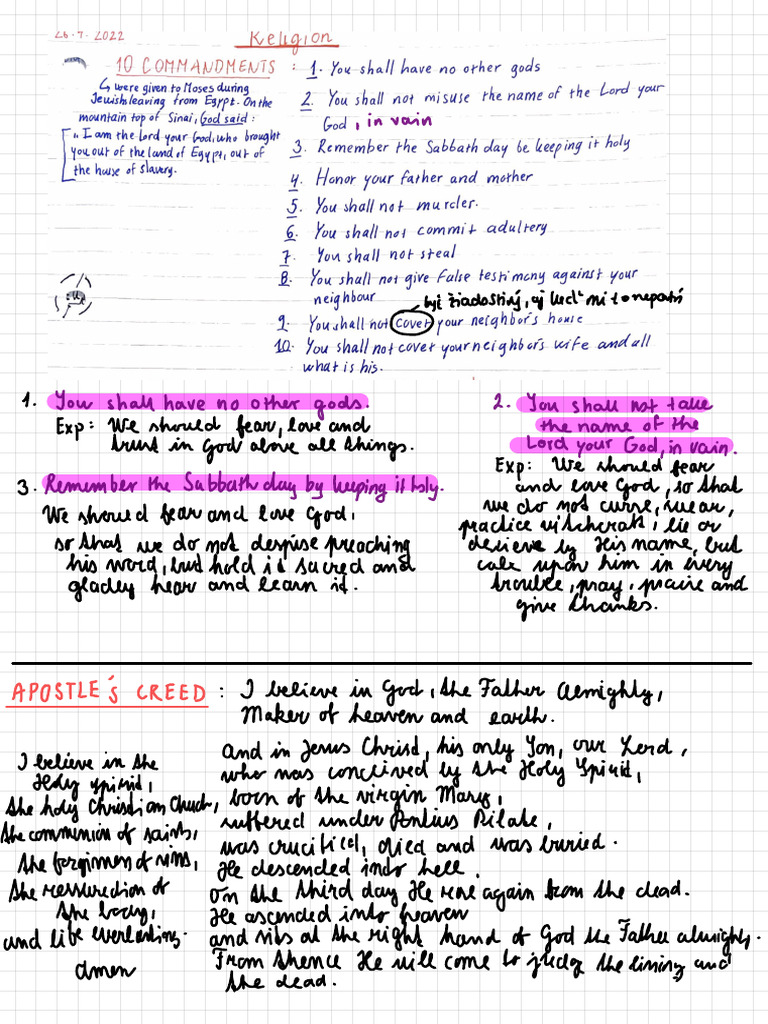 26.7.2022
Religion
10 COMMANDMENTS :
↳ were given to Moses during
Jewish leaving from Egypt. On the
mountain top of Sinai, God said:
"I am the Lord your God, who brought
you out of the land of Egypt, out of
the house of slavery.
1. You shall have no other gods
2. You shall not misuse the name of the Lord your
God, in vain
3. Remember the Sabbath day be keeping it holy
4. Honor your father and mother
5. You shall not murder.
6. You shall not commit adultery
7. You shall not steal
8. You shall not give false testimony against your
neighbour
byť žiadostivý, aj keď mi to nepatrí
9. You shall not covet your neighbor's house
10. You shall not covet your neighbor's wife and all
what is his.
1. You shall have no other gods.
Exp: We should fear, love and
trust in God above all things.
2. You shall not take
the name of the
Lord your God, in vain.
Exp: We should fear
and love God, so that
we do not curse, swear,
practice witchcraft, lie or
decieve by His name, but
call upon him in every
trouble, pray, praise and
give thanks.
3. Remember the Sabbath day by keeping it holy.
We should fear and love God,
so that we do not despise preaching
his word, but hold it sacred and
gladly hear and learn it.
APOSTLE's CREED : I believe in God, the Father Almighty,
Maker of heaven and earth.
and in Jesus Christ, his only Son, our Lord,
who was conceived by the Holy Spirit,
born of the virgin Mary,
suffered under Pontius Pilate,
was crucified, died and was buried.
He descended into hell.
On the third day He rose again from the dead.
He ascended into heaven
and sits at the right hand of God the Father almighty.
From thence He will come to judge the living and
the dead.
I believe in the
Holy spirit,
the holy Christian Church,
the communion of saints,
the forgivness of sins,
the ressurection of
the body,
and life everlasting.
amen